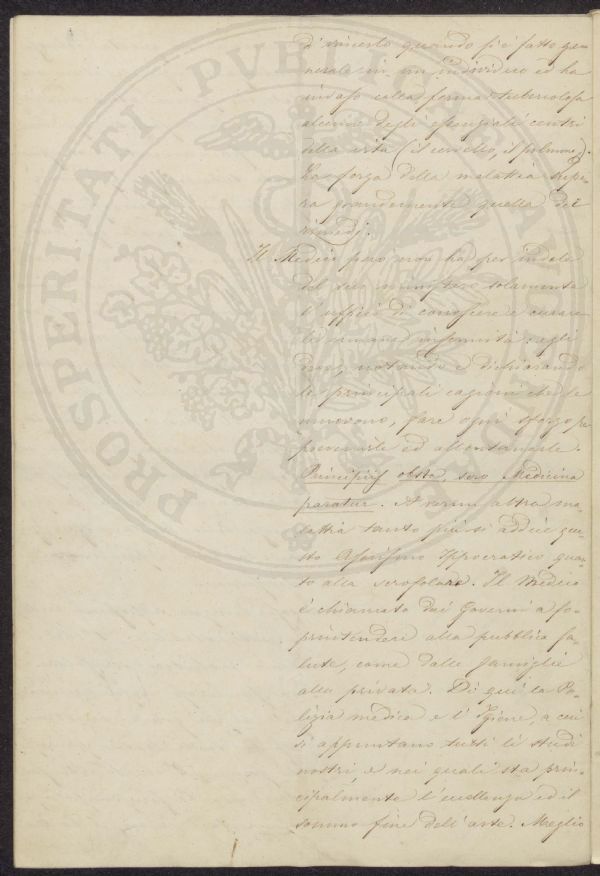 PROSPERITATI PUBLICAE
d'incerto quando si è fatto ge-
nerale in un individuo ed ha
invaso colla forma tubercolosa
alcuni degli essenziali centri
della vita (il cervello, il polmone).
La forza della malattia supe-
ra grandemente quella dei
rimedj.
Il Medico però non ha per indole
del suo ministero solamente
l'uffizio di conoscere e curare
le umane infermità: egli
deve, notando e dichiarando
le principali cagioni che le
muovono, fare ogni sforzo p
prevenirle ed allontanarle.
Principiis obsta, sero Medicina
paratur. A verun altra ma-
lattia tanto più si addice que-
sto Aforismo Ippocratico quan-
to alla scrofolare. Il Medico
è chiamato dai Governi a so-
printendere alla pubblica sa-
lute, come dalle famiglie
alla privata. Di qui la Po-
lizia medica e l'Igiene, a cui
si appuntano tutti li studi
nostri, e nei quali sta prin-
cipalmente l'eccellenza ed il
sommo fine dell'arte. Meglio